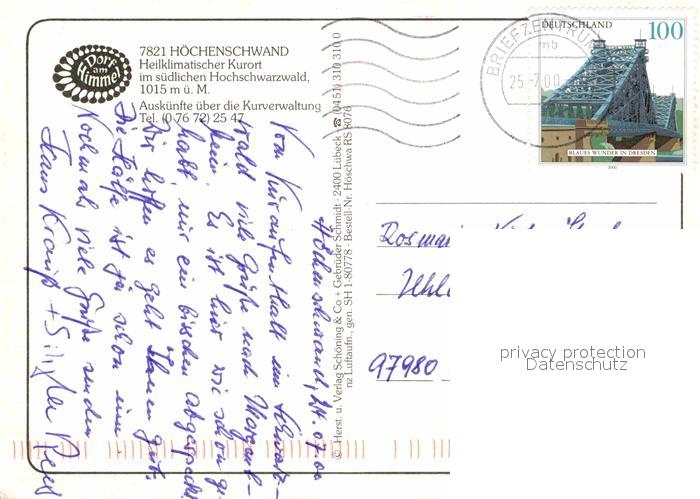 Dorf
am
Himmel
7821 HÖCHENSCHWAND
Heilklimatischer Kurort
im südlichen Hochschwarzwald,
1015 m ü. M.
Auskünfte über die Kurverwaltung
Tel. (0 76 72) 25 47
Höchenschwand, 24.07.00
Vom Kuraufenthalt im Schwarz-
wald viele Grüße nach Mergent-
heim. Es ist hier wie schon ge-
habt, nur ein bisschen abgespeckt
Wir hoffen es geht Ihnen gut.
Die Hälfte ist ja schon um
Nochmals viele Grüße senden
Hans Krauß +
© Herst. u. Verlag Schöning & Co + Gebrüder Schmidt · 2400 Lübeck ☎ (0451) 310 310 0
nz Luftaufn., gen. SH 1-80778 · Bestell-Nr. Höschwa RS 8076
BRIEFZENTRUM
25.-7.00
mb
DEUTSCHLAND
100
BLAUES WUNDER IN DRESDEN
2000
97980
privacy protection
Datenschutz